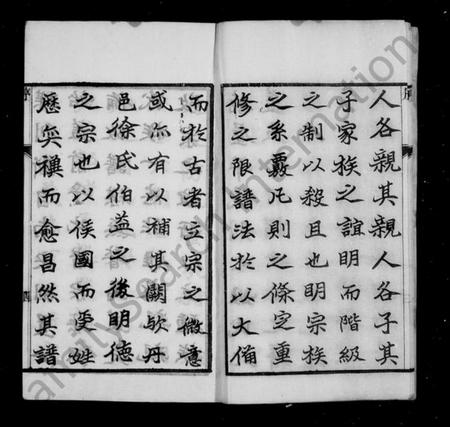 人各親其親人各子其
子家族之誼明而階級
之制以殺且也明宗族
之系覈凡則之條定重
修之限譜法於以大備
而於古者立宗之微意
或亦有以補其闕歟丹
邑徐氏伯益之後明德
之宗也以侯國而受姓
歷矣禩而愈昌然其譜